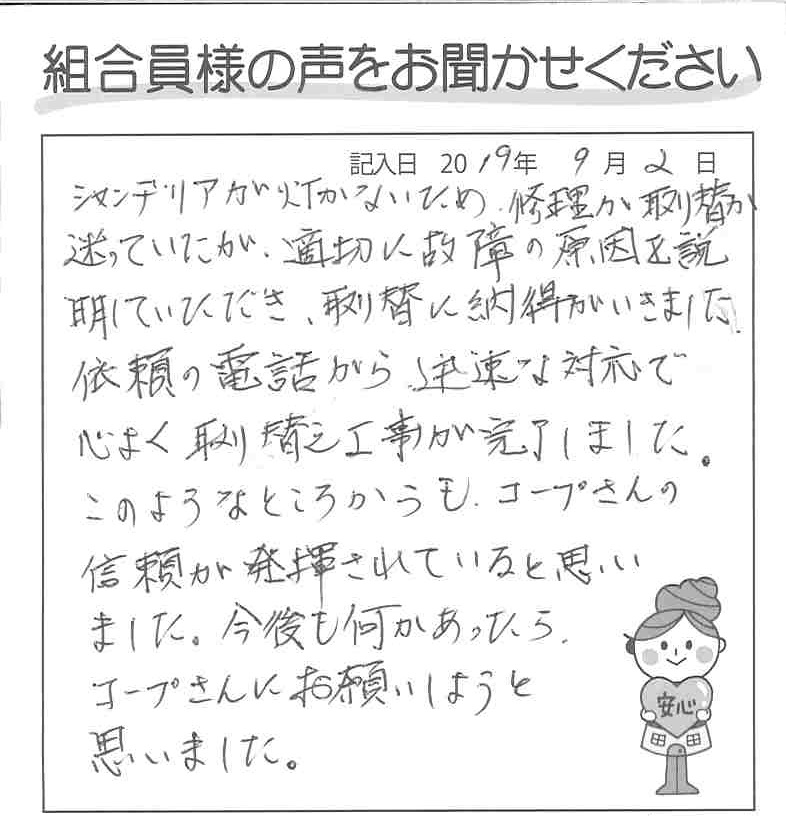 組合員様の声をお聞かせください
記入日 2019年 9月 2日
シャンデリアが灯かないため、修理か取り替か
迷っていたが、適切に故障の原因を説
明していただき、取り替に納得がいきました。
依頼の電話から迅速な対応で
心よく取り替え工事が完了しました。
このようなところからも、コープさんの
信頼が発揮されていると思い
ました。今後も何かあったら、
コープさんにお願いしようと
思いました。
安心